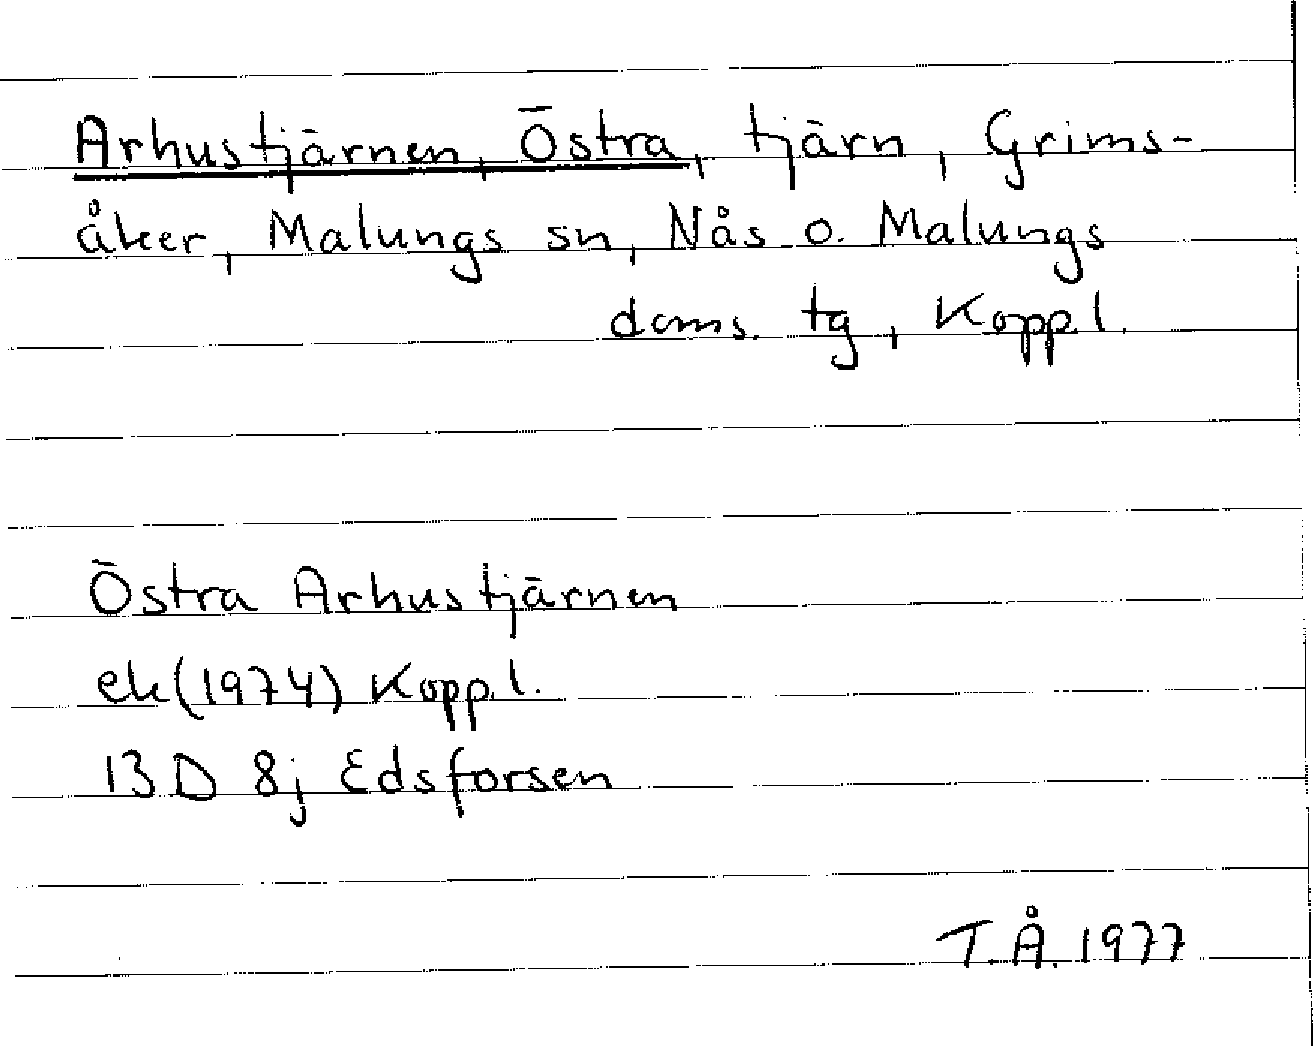 Arhustjärnen, Östra, tjärn, Grims-
åker, Malungs sn, Nås o. Malungs
doms. tg, Koppl.
Östra Arhustjärnen
ek(1974) Koppl.
13 D 8j Edsforsen
T.Å. 1977